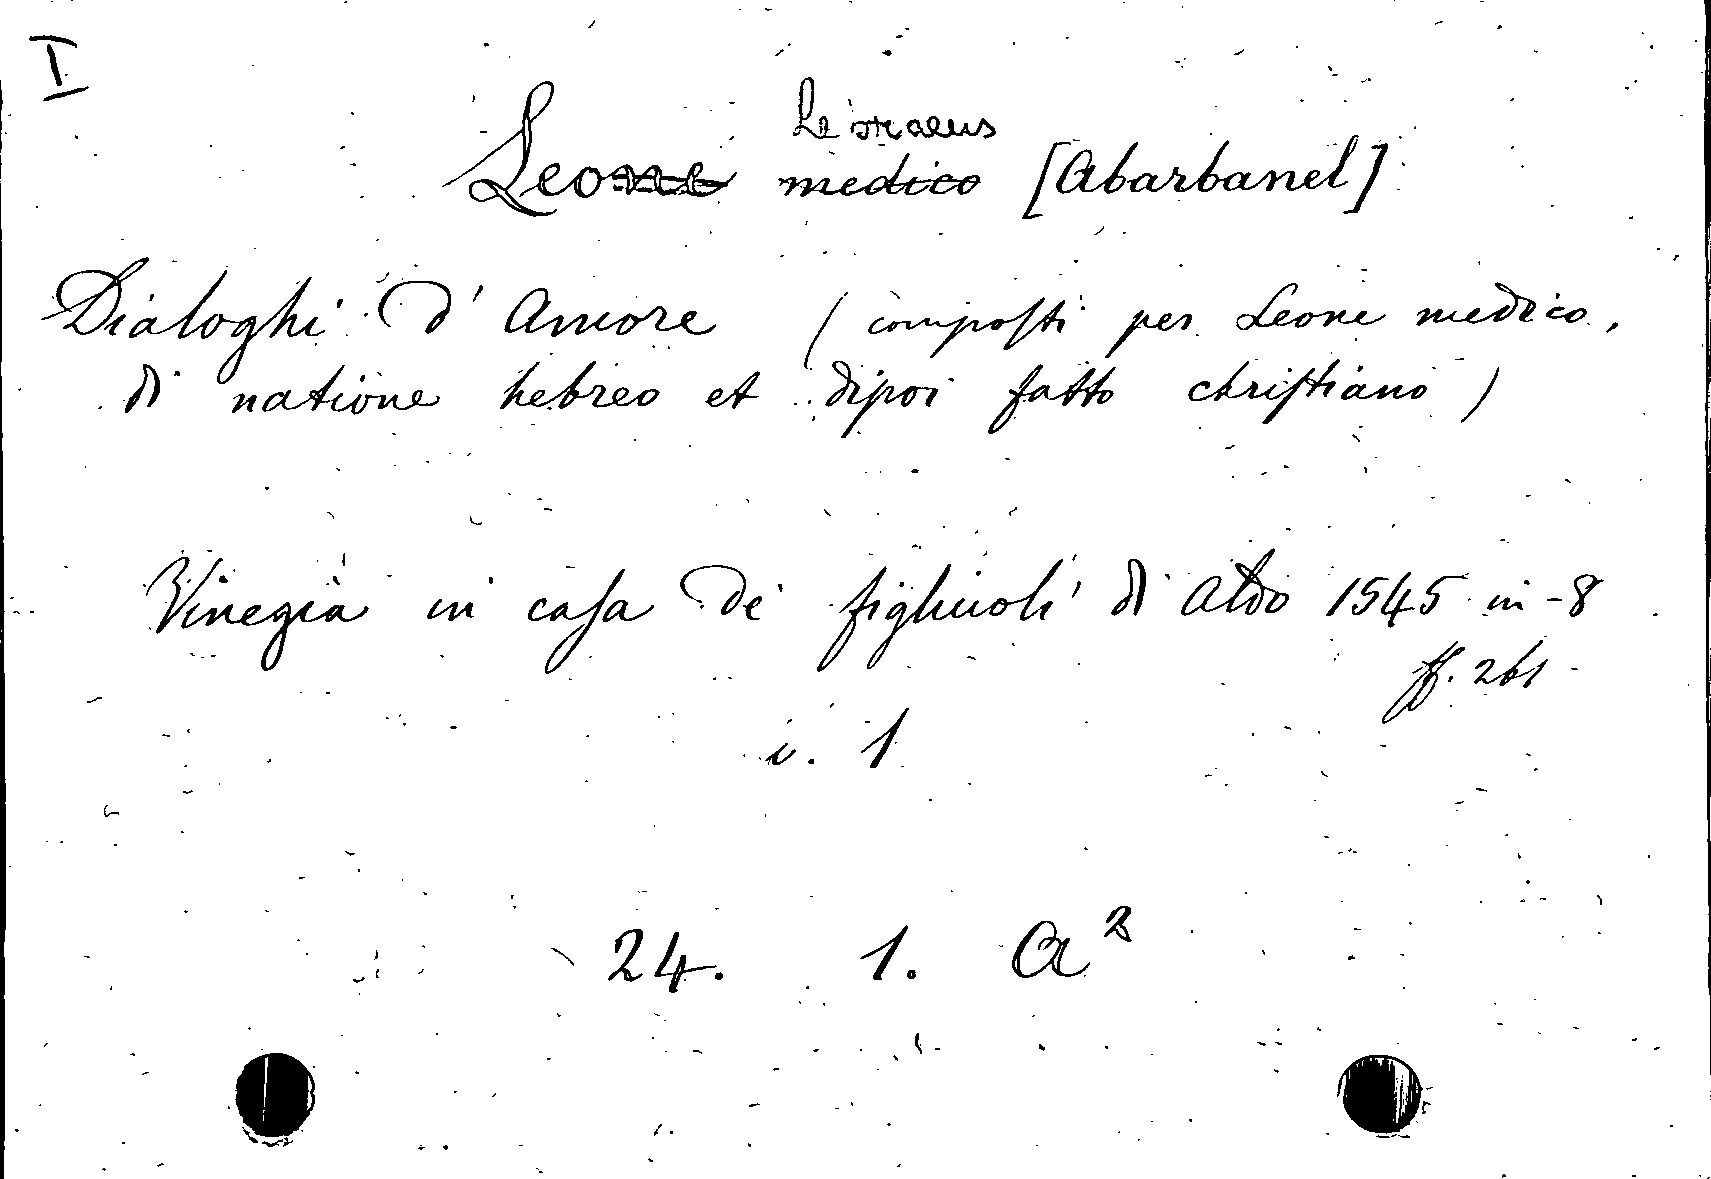 I
Hebraeus
Leone medico [Abarbanel]
Dialoghi d'Amore (composti per Leone medico,
di natione hebreo et dipoi fatto christiano)
Vinegia in casa de' figliuoli di Aldo 1545 in-8
ff. 261
i. 1
24. 1. a²